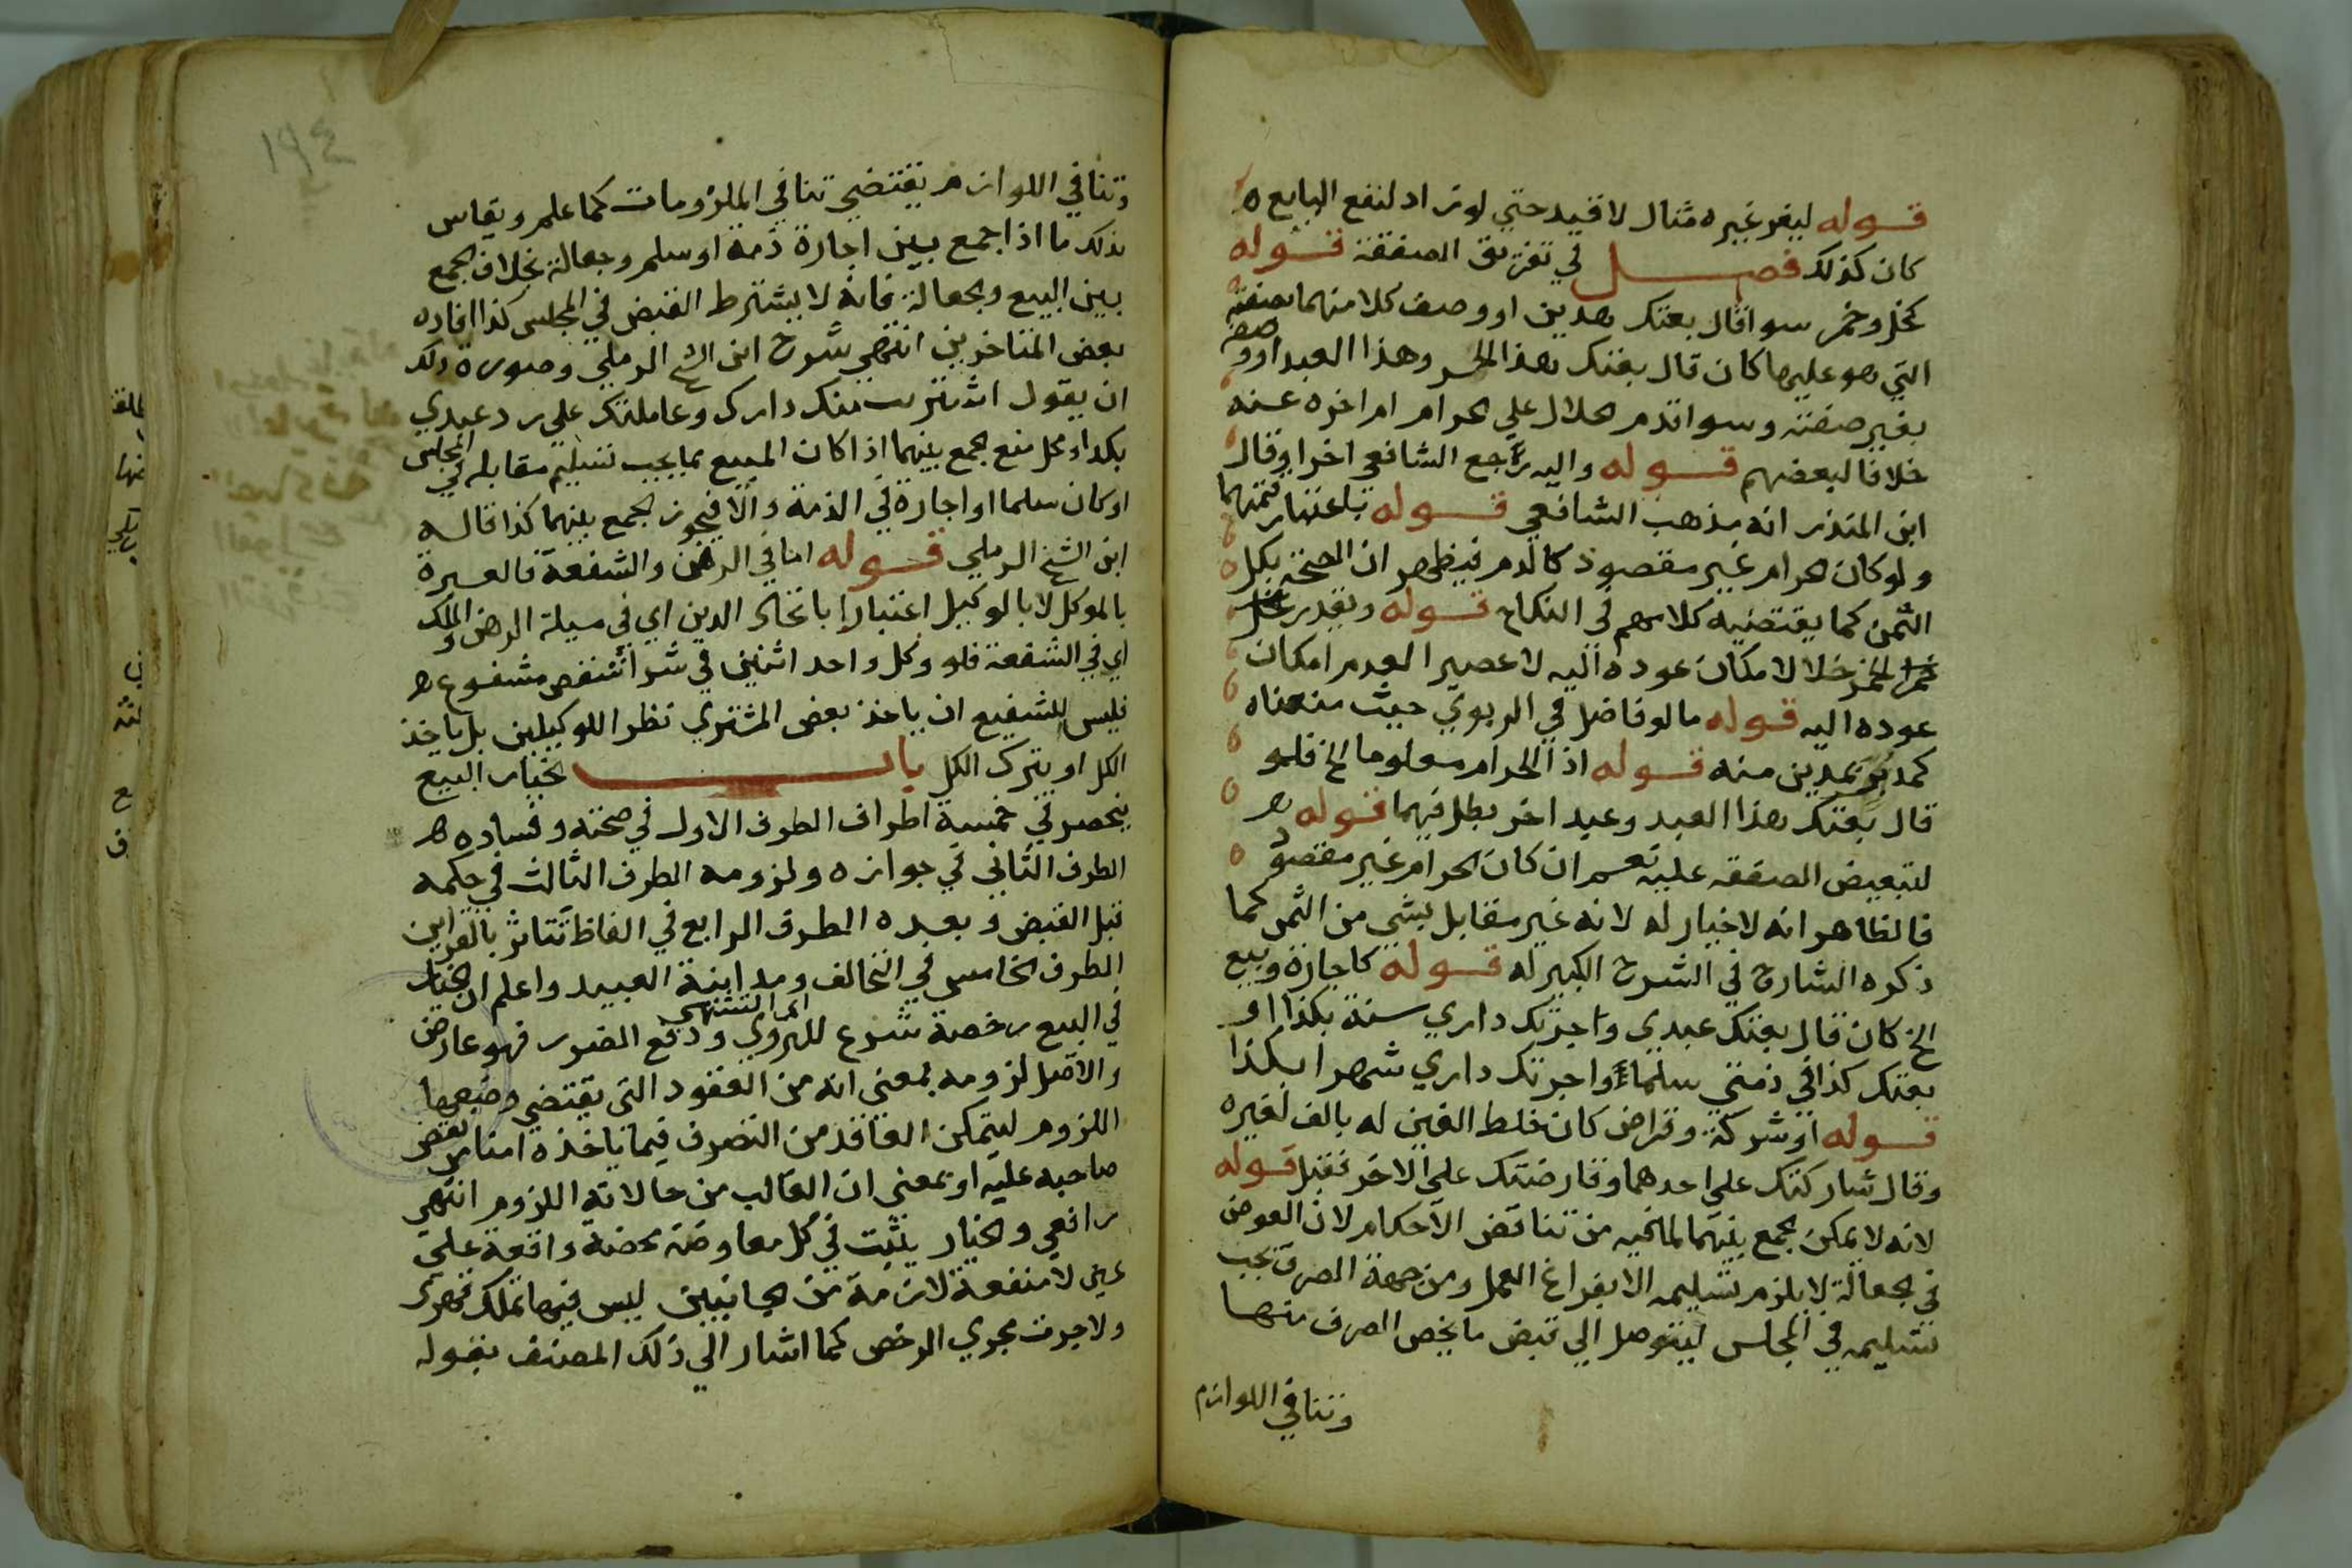 قوله ليغر غيره مثال لا قيد حتي لو زاد لنفع البايع ه
كان كذلك فصل في تفريق الصفقة قوله
كخل وخمر سوا قال بعتك هذين او وصف كلا منهما بصفته
التي هو عليها كان قال بعتك هذا الخمر وهذا العبد او وصفه
بغير صفته وسوا قدم الحلال علي الحرام ام اخره عنه
خلافا لبعضهم قوله واليه رجع الشافعي اخرا وقال
ابن المنذر انه مذهب الشافعي قوله باعتبار قيمتهما
ولو كان الحرام غير مقصود كالدم فيظهر ان الصحة بكل
الثمن كما يقتضيه كلامهم في النكاح قوله ويقدر
الخمر خلا لا مكان عوده اليه لا عصيرا لعدم امكان
عوده اليه قوله ما لو فاضل في الربوي حيث منعناه
كمد بر بمدين منه قوله اذ الحرام معلوما الخ فلو
قال بعتك هذا العبد وعبد اخر بطل فيهما قوله
لتبعيض الصفقه عليه نعم ان كان الحرام غير مقصود
فالظاهر انه لا خيار له لانه غير مقابل بشي من الثمن كما
ذكره الشارح في الشرح الكبير له قوله كاجارة وبيع
الخ كان قال بعتك عبدي واجرتك داري سنة بكذا او
بعتك كذا في ذمتي سلما واجرتك داري شهرا بكذا
قوله او شركة وقراض كان خلط الفين له بالف لغيره
وقال شاركتك علي احدهما وقارضتك علي الاخر فقبل قوله
لانه لا يمكن الجمع بينهما لما فيه من تناقض الاحكام لان العوض
في الجعالة لا يلزم تسليمه الا بفراغ العمل ومن جهة الصرف يجب
تسليمه في المجلس ليتوصل الي قبض ما يخص الصرف منها
وتنافي اللوازم
١٩٤
وتنافي اللوازم يقتضي تنافي الملزومات كما علم ويقاس
بذلك ما اذا جمع بين اجارة ذمة او سلم وجعالة بخلاف الجمع
بين البيع والجعالة فانه لا يشترط القبض في المجلس كذا افاده
بعض المتاخرين انتهي شرح ابن الشيخ الرملي وصورة ذلك
ان يقول اشتريت منك دارك وعاملتك علي رد عبدي
بكذا ومحل منع الجمع بينهما اذا كان المبيع مما يجب تسليم مقابله في المجلس
او كان سلما او اجارة في الذمة والا فيجوز الجمع بينهما كذا قاله
ابن الشيخ الرملي قوله اما في الرهن والشفعة فالعبرة
بالموكل لا بالوكيل اعتبارا باتحاد الدين اي في مسيلة الرهن والملك
اي في الشفعة فلو وكل واحد اثنين في شرا شقص مشفوع
فليس للشفيع ان ياخذ بعض المشتري نظرا للوكيلين بل ياخذ
الكل او يترك الكل باب الخيار البيع
ينحصر في خمسة اطراف الطرف الاول في صحته وفساده
الطرف الثاني في جوازه ولزومه الطرف الثالث في حكمه
قبل القبض وبعده الطرف الرابع في الفاظ تتاثر بالقراين
الطرف الخامس في التحالف ومداينة العبيد واعلم ان الخيار
في البيع رخصة شرع للتروي اي التشهي ودفع الضرر فهو عارض
والاصل لزومه بمعني انه من العقود التي يقتضي وضعها
اللزوم ليتمكن العاقد من التصرف فيما ياخذه امنا من نقض
صاحبه عليه او بمعني ان الغالب من حالاته اللزوم انتهي
رافعي والخيار يثبت في كل معاوضة محضة واقعة علي
عين لا منفعة لازمة من الجانبين ليس فيها تملك قهري
ولا جرت مجري الرخص كما اشار الي ذلك المصنف بقوله